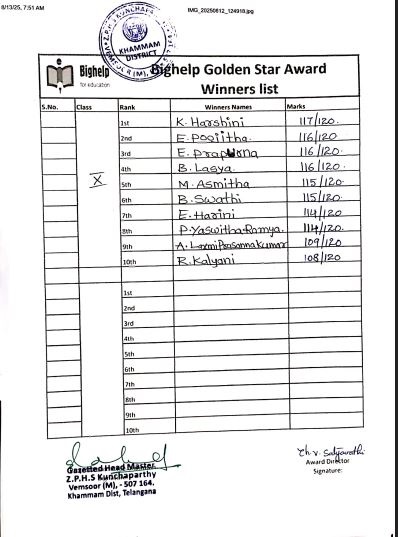 8/13/25, 7:51 AM
IMG_20250812_124918.jpg
Z.P.H.S KUNCHAPA
KHAMMAM
DISTRICT
Bighelp
for education
Bighelp Golden Star Award
Winners list
S.No. Class Rank Winners Names Marks
1st K. Harshini 117/120.
2nd E. Poojitha. 116/120
3rd E. Prapurna 116/120.
4th B. Lasya. 116/120
X 5th M. Asmitha 115/120.
6th B. Swathi 115/120.
7th E. Harini 114/120
8th P. Yaswitha Ramya. 114/120.
9th A. Laxmi Prasanna kumari 109/120
10th R. Kalyani 108/120
1st
2nd
3rd
4th
5th
6th
7th
8th
9th
10th
Gazetted Head Master
Z.P.H.S Kunchaparthy
Vemsoor (M), - 507 164.
Khammam Dist, Telangana
Ch. V. Satyavathi
Award Director
Signature: